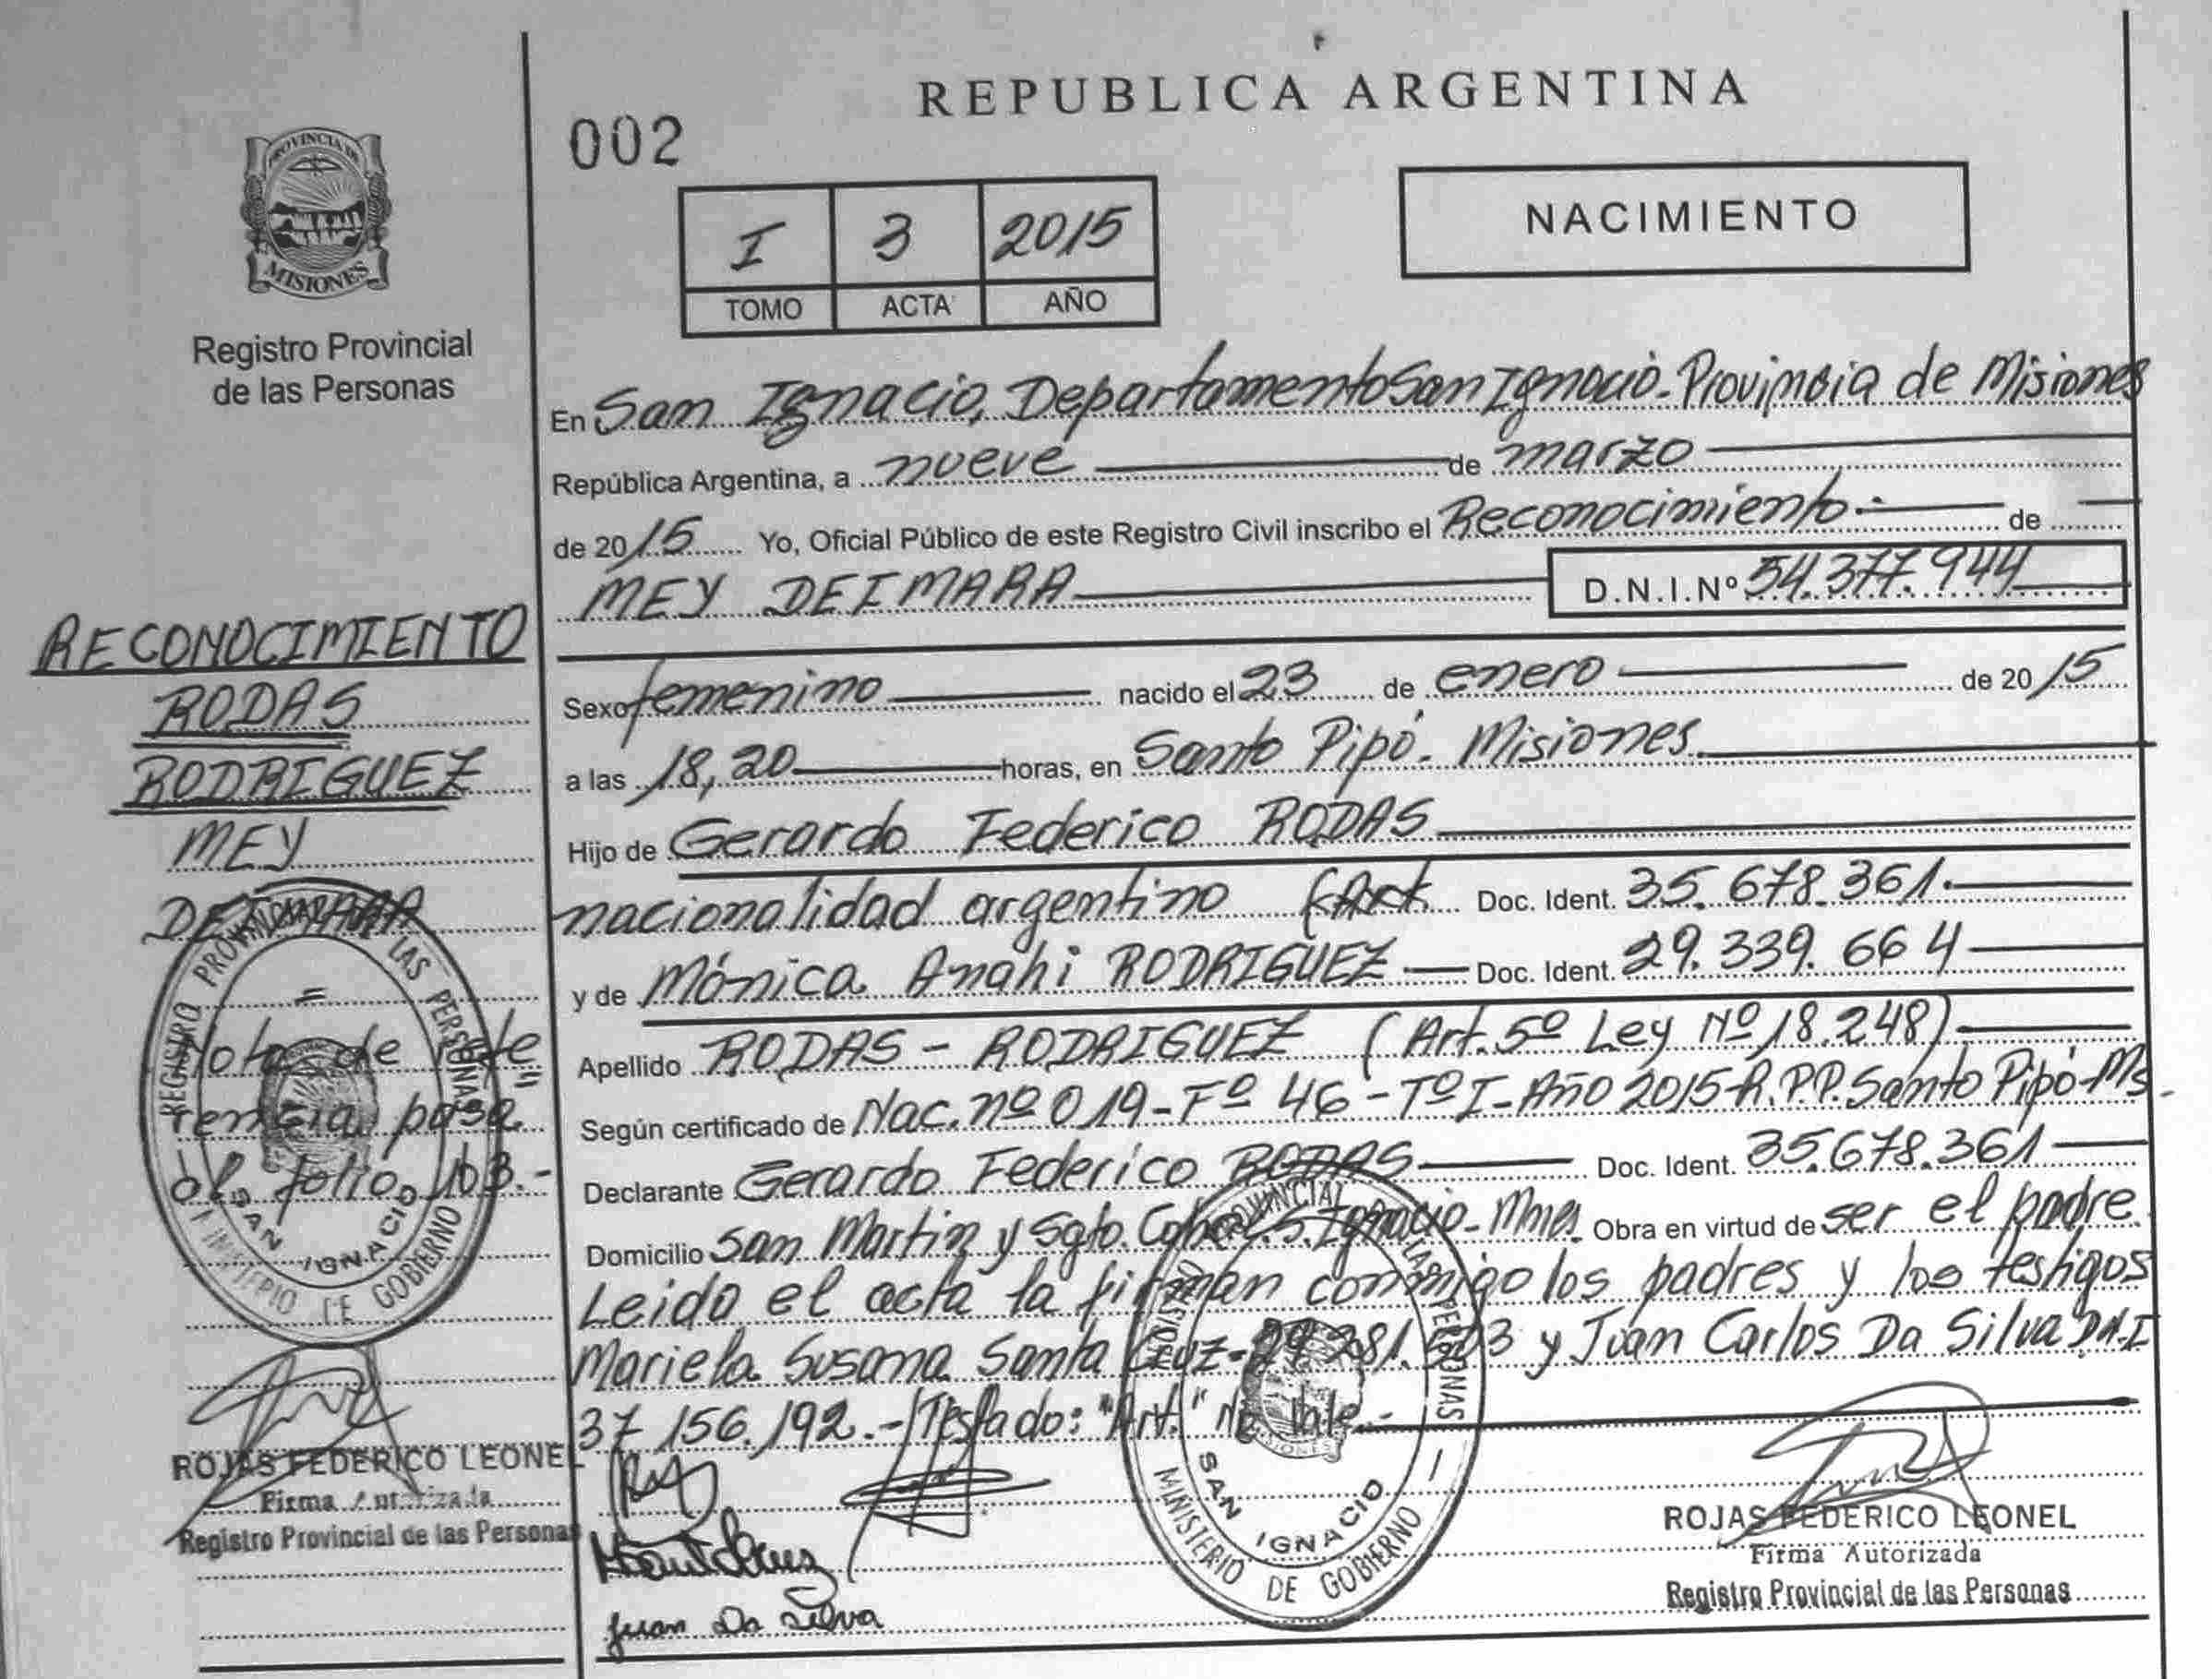 REPUBLICA ARGENTINA
002
PROVINCIA DE
MISIONES
Registro Provincial
de las Personas
I 3 2015
TOMO ACTA AÑO
NACIMIENTO
En San Ignacio, Departamento San Ignacio - Provincia de Misiones
República Argentina, a nueve de marzo
de 2015 Yo, Oficial Público de este Registro Civil inscribo el Reconocimiento.- de
MEY DEIMARA D.N.I.Nº 54.377.944
Sexo femenino nacido el 23 de enero de 2015
a las 18,20 horas, en Santo Pipó - Misiones
Hijo de Gerardo Federico RODAS
nacionalidad argentino Doc. Ident. 35.678.361.
y de Mónica Anahi RODRIGUEZ Doc. Ident. 29.339.664
Apellido RODAS - RODRIGUEZ (Art. 5º Ley Nº 18.248)
Según certificado de Nac. nº 019 - Fº 46 - Tº I - Año 2015 - R.P.P. Santo Pipó - Ms.
Declarante Gerardo Federico RODAS Doc. Ident. 35.678.361
Domicilio San Martin y Sgto. Cabral. S. Ignacio - Mnes. Obra en virtud de ser el padre.
Leido el acta la firman conmigo los padres y los testigos
Mariela Susana Santa Cruz - y Juan Carlos Da Silva D.N.I
37.156.192.- / Testado: "Art." No Vale.-
RECONOCIMIENTO
RODAS
RODRIGUEZ
MEY
DEIMARA
=
Nota de
rencia pasa
al folio 103.-
REGISTRO PROVINCIAL DE LAS PERSONAS
SAN IGNACIO
MINISTERIO DE GOBIERNO
ROJAS FEDERICO LEONEL
Firma Autorizada
Registro Provincial de las Personas
Juan Da Silva
REGISTRO PROVINCIAL DE LAS PERSONAS
MISIONES
SAN IGNACIO
MINISTERIO DE GOBIERNO
ROJAS FEDERICO LEONEL
Firma Autorizada
Registro Provincial de las Personas